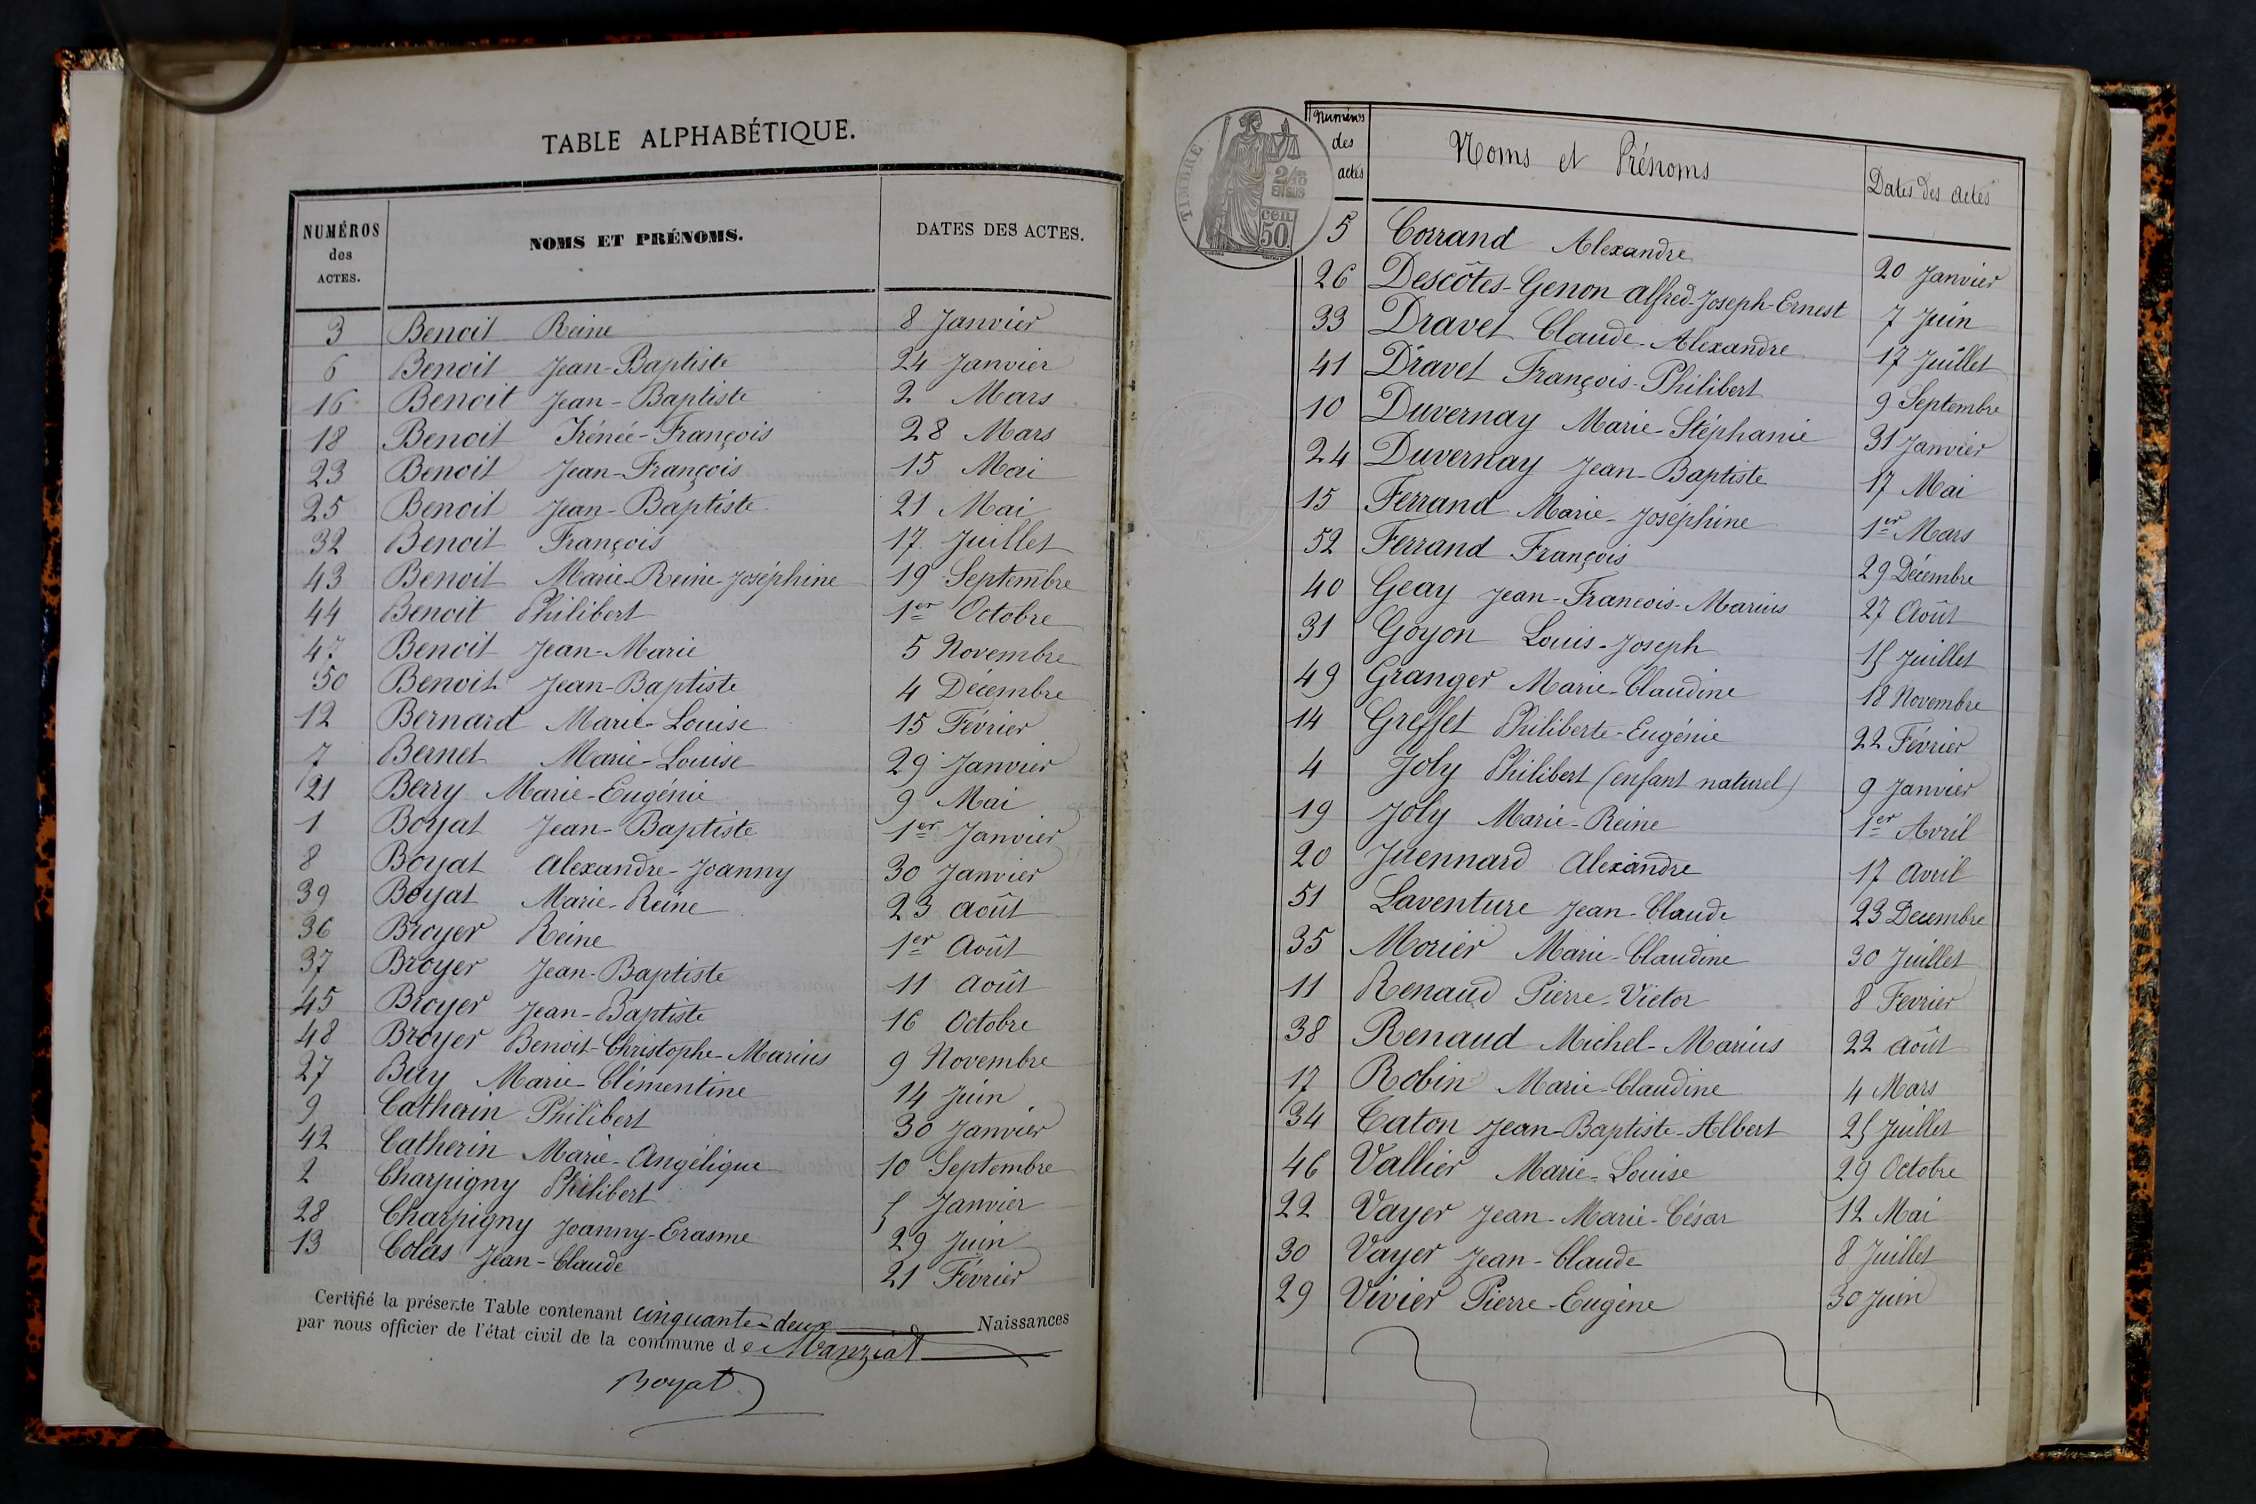 TABLE ALPHABÉTIQUE.
NUMÉROS des ACTES. NOMS ET PRÉNOMS. DATES DES ACTES.
3 Benoit Reine 8 Janvier
6 Benoit Jean-Baptiste 24 Janvier
16 Benoit Jean-Baptiste 2 Mars
18 Benoit Irénée-François 28 Mars
23 Benoit Jean-François 15 Mai
25 Benoit Jean-Baptiste 21 Mai
32 Benoit François 17 Juillet
43 Benoit Marie-Reine-Joséphine 19 Septembre
44 Benoit Philibert 1er Octobre
47 Benoit Jean-Marie 5 Novembre
50 Benoit Jean-Baptiste 4 Décembre
12 Bernard Marie-Louise 15 Février
7 Bernet Marie-Louise 29 Janvier
21 Berry Marie-Eugénie 9 Mai
1 Boyat Jean-Baptiste 1er Janvier
8 Boyat Alexandre-Joanny 30 Janvier
39 Boyat Marie-Reine 23 Août
36 Broyer Reine 1er Août
37 Broyer Jean-Baptiste 11 Août
45 Broyer Jean-Baptiste 16 Octobre
48 Broyer Benoit-Christophe-Marius 9 Novembre
27 Buy Marie-Clémentine 14 Juin
9 Catherin Philibert 30 Janvier
42 Catherin Marie-Angélique 10 Septembre
2 Charpigny Philibert 5 Janvier
28 Charpigny Joanny-Erasme 29 Juin
13 Colas Jean-Claude 21 Février
Certifié la présente Table contenant cinquante-deux Naissances
par nous officier de l'état civil de la commune de Manziat
Boyat
TIMBRE
2/10
EN SUS
cen
50
Numéros des actes Noms et Prénoms Dates des actes
5 Corrand Alexandre 20 Janvier
26 Descôtes-Genon Alfred-Joseph-Ernest 7 Juin
33 Dravet Claude-Alexandre 17 Juillet
41 Dravet François-Philibert 9 Septembre
10 Duvernay Marie-Stéphanie 31 Janvier
24 Duvernay Jean-Baptiste 17 Mai
15 Ferrand Marie-Joséphine 1er Mars
52 Ferrand François 29 Décembre
40 Geay Jean-François-Marius 27 Août
31 Goyon Louis-Joseph 15 Juillet
49 Granger Marie-Claudine 18 Novembre
14 Greffet Philiberte-Eugénie 22 Février
4 Joly Philibert (enfant naturel) 9 Janvier
19 Joly Marie-Reine 1er Avril
20 Juennard Alexandre 17 Avril
51 Laventure Jean-Claude 23 Decembre
35 Morier Marie-Claudine 30 Juillet
11 Renaud Pierre-Victor 8 Fevrier
38 Renaud Michel-Marius 22 Août
17 Robin Marie-Claudine 4 Mars
34 Caton Jean-Baptiste-Albert 25 Juillet
46 Vallier Marie-Louise 29 Octobre
22 Vayer Jean-Marie-César 12 Mai
30 Vayer Jean-Claude 8 Juillet
29 Vivier Pierre-Eugène 30 Juin